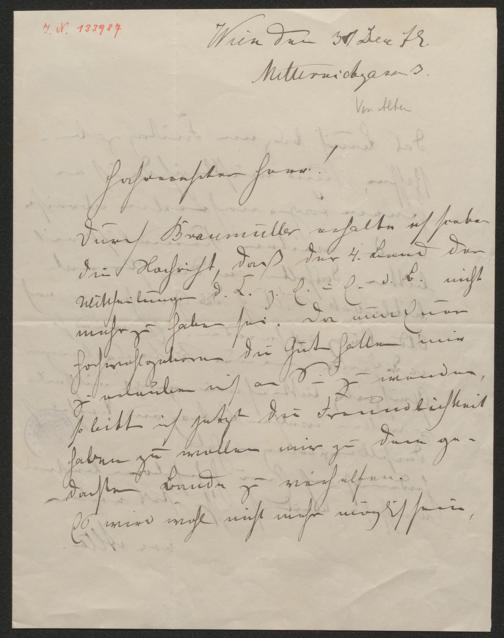 J. N. 133987
Wien den 31 Dez 72
Metternichgasse 3.
Von Alter
Hochverehrter Herr!
Durch Braumüller erhalte ich soeben
die Nachricht, daß der 4. Band der
Mittheilungen d. k. k. C. C. d. B. nicht
mehr zu haben sei. Da nun Euer
Hochwohlgeboren die Güte hatten mir
zu erlauben mich an Sie zu wenden,
so bitte ich jetzt die Freundlichkeit
haben zu wollen mir zu dem ge-
dachten Bande zu verhelfen.
Es wird wohl nicht mehr möglich sein,